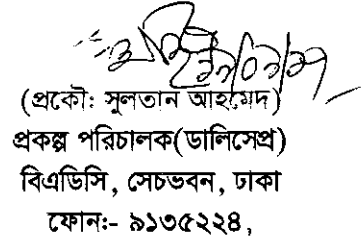 (প্রকৌ: সুলতান আহমেদ)
প্রকল্প পরিচালক(ডালিসেপ্র)
বিএডিসি, সেচভবন, ঢাকা
ফোন:- ৯১৩৫২২৪,